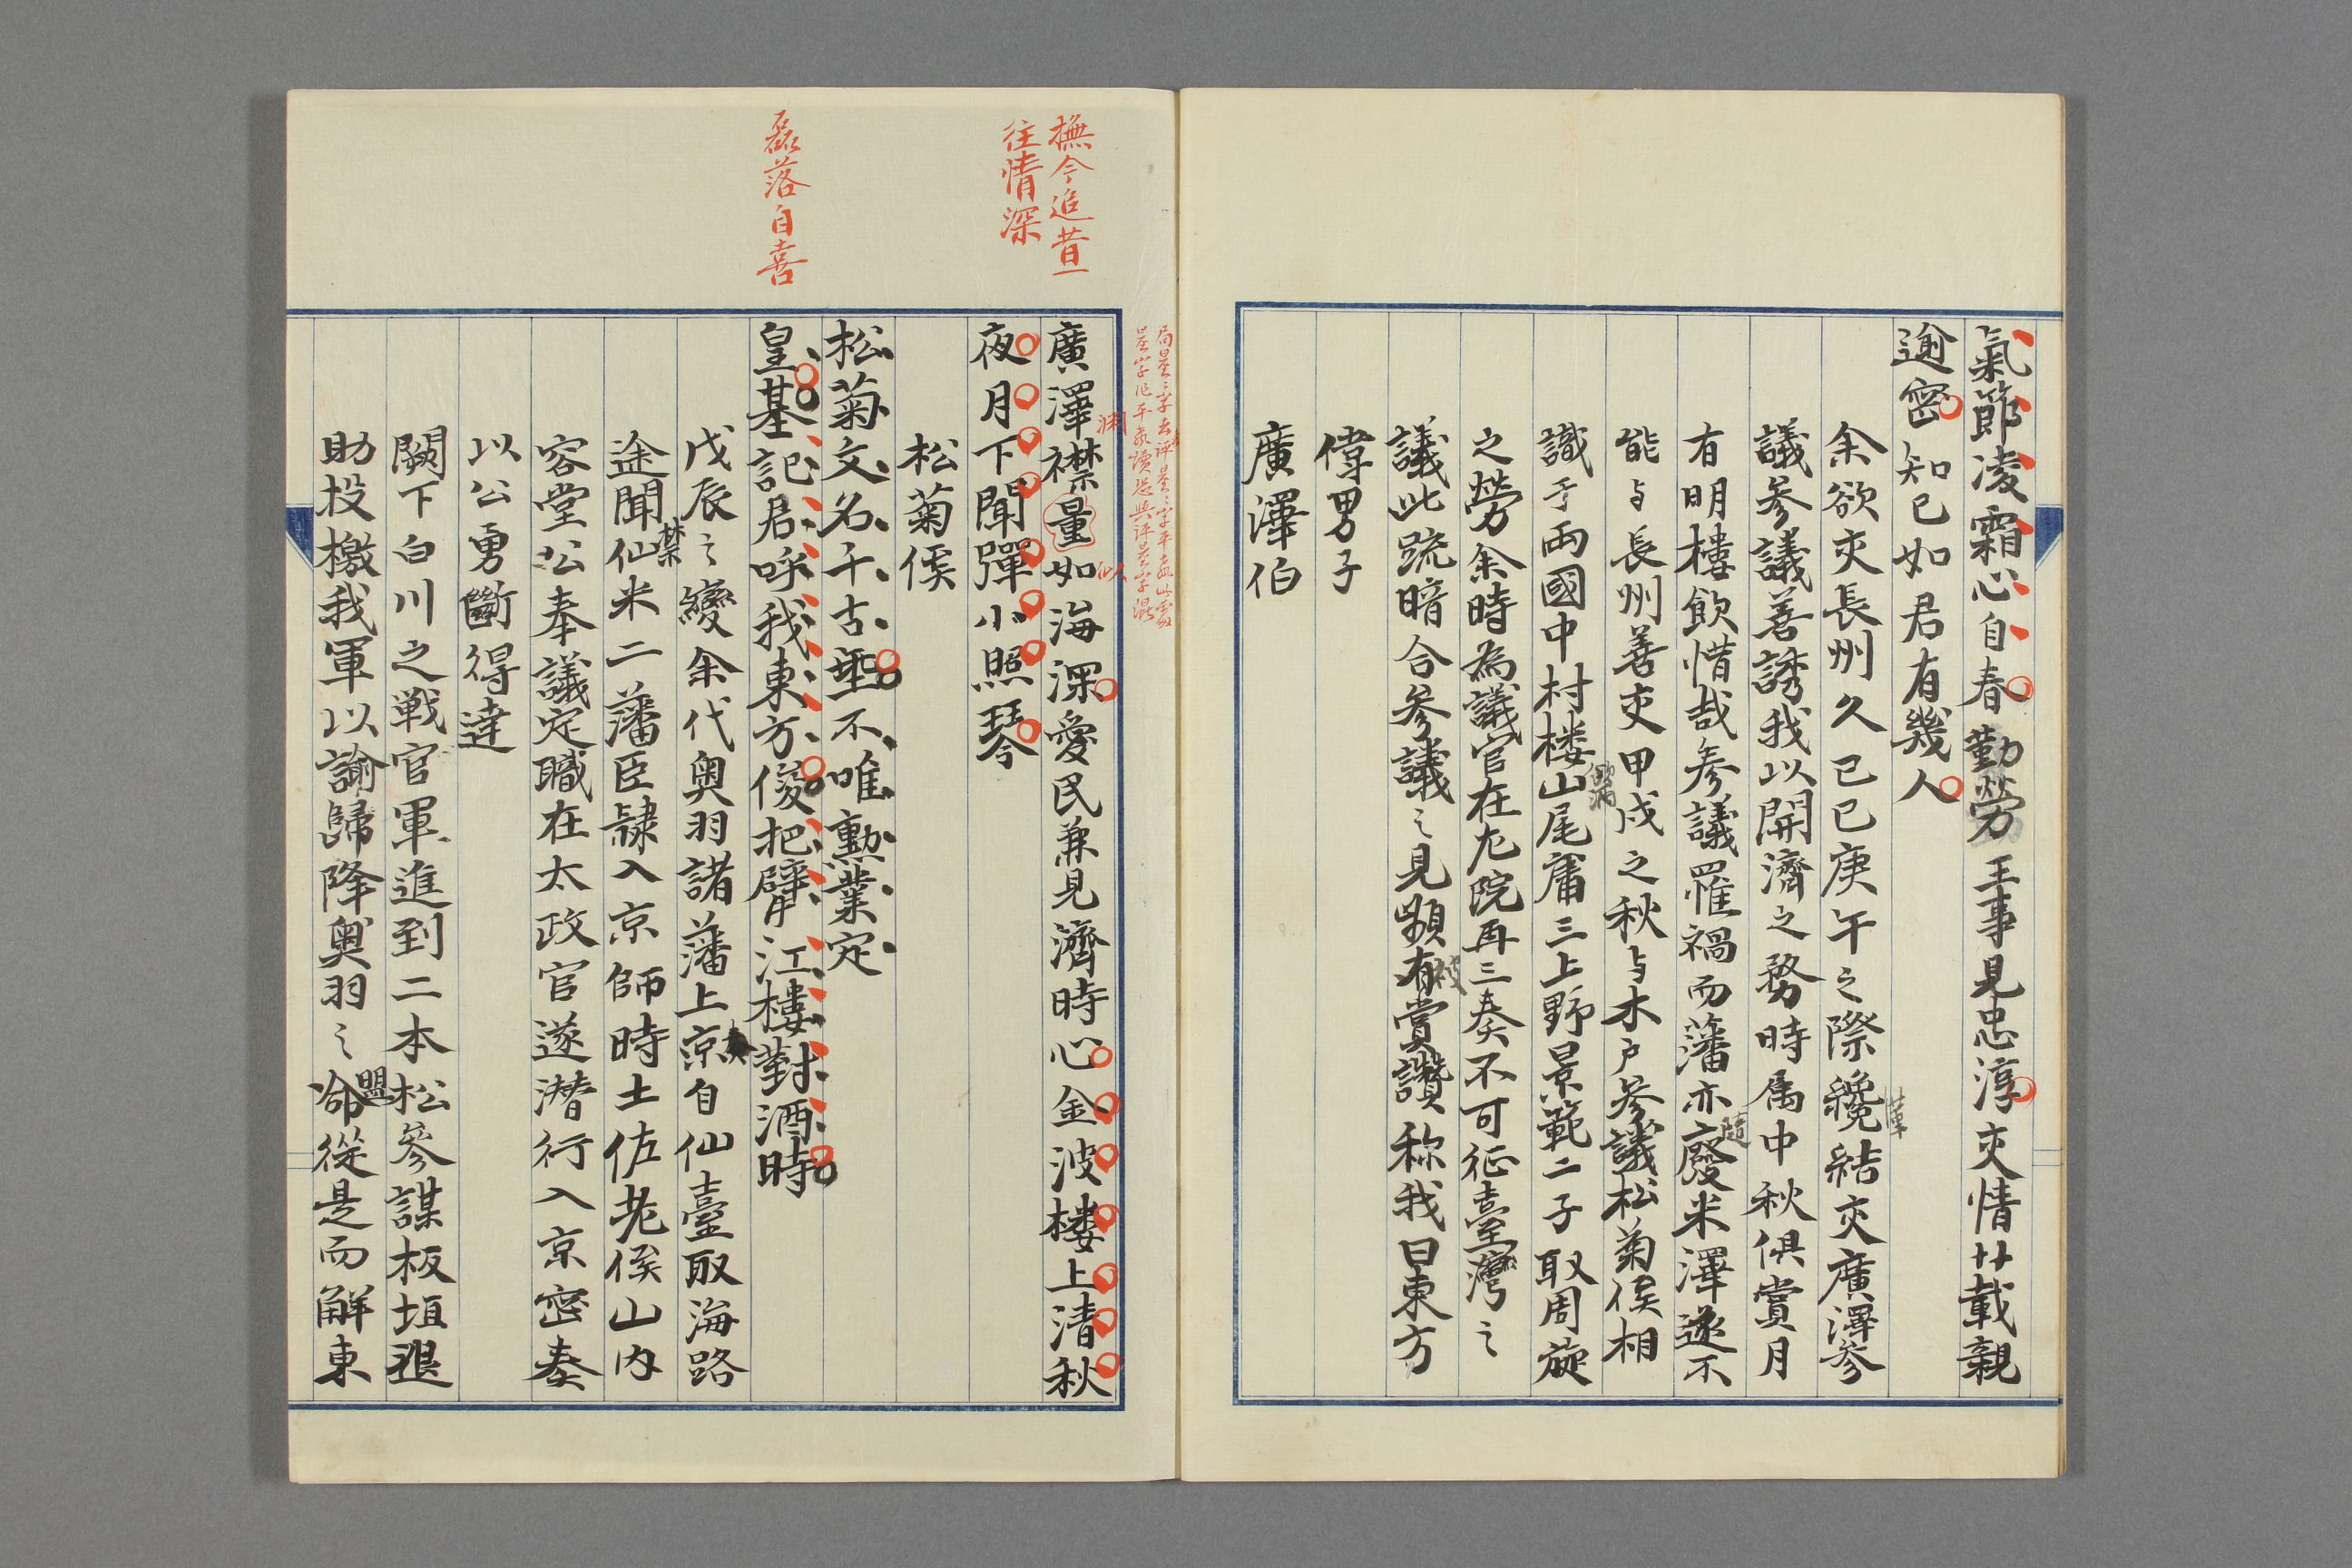 氣節凌霜心自春勤勞王事見忠淳交情廿載親
逾密知已如君有幾人
余欲交長州久已已庚午之際纔結交廣澤參
議參議善誘我以開濟之務時属中秋俱賞月
有明樓飲惜哉參議罹禍而藩亦廢米澤遂不
隨
能与長州善交甲戌之秋与木戸參議松菊侯相
識于両國中村楼山尾庸三上野景範二子取周旋
之勞余時為議官在左院再三奏不可征臺灣之
議此疏暗合參議之見顕有賞讚称我曰東方
被
偉男子
廣澤伯
撫今追昔一
往情深
廣澤襟量如海深愛民兼見濟時心金波楼上清秋
淵
似
夜月下聞彈小照琴
松菊侯
松菊文名千古垂不唯勳業定
磊落自喜
皇基記君呼我東方俊把臂江樓對酒時
戊辰之變余代奥羽諸藩上京自仙臺取海路
途聞仙米二藩臣隷入京師時土佐老侯山内
禁
容堂公奉議定職在太政官遂潜行入京密奏
以公勇斷得達
闕下白川之戦官軍進到二本松參謀板垣退
助投檄我軍以諭歸降奥羽之命從是而解東
盟